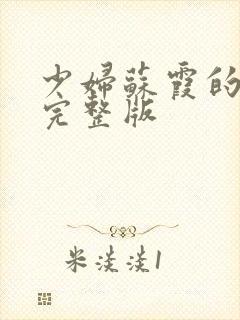 少婦蘇霞的
完整版
米淡淡1